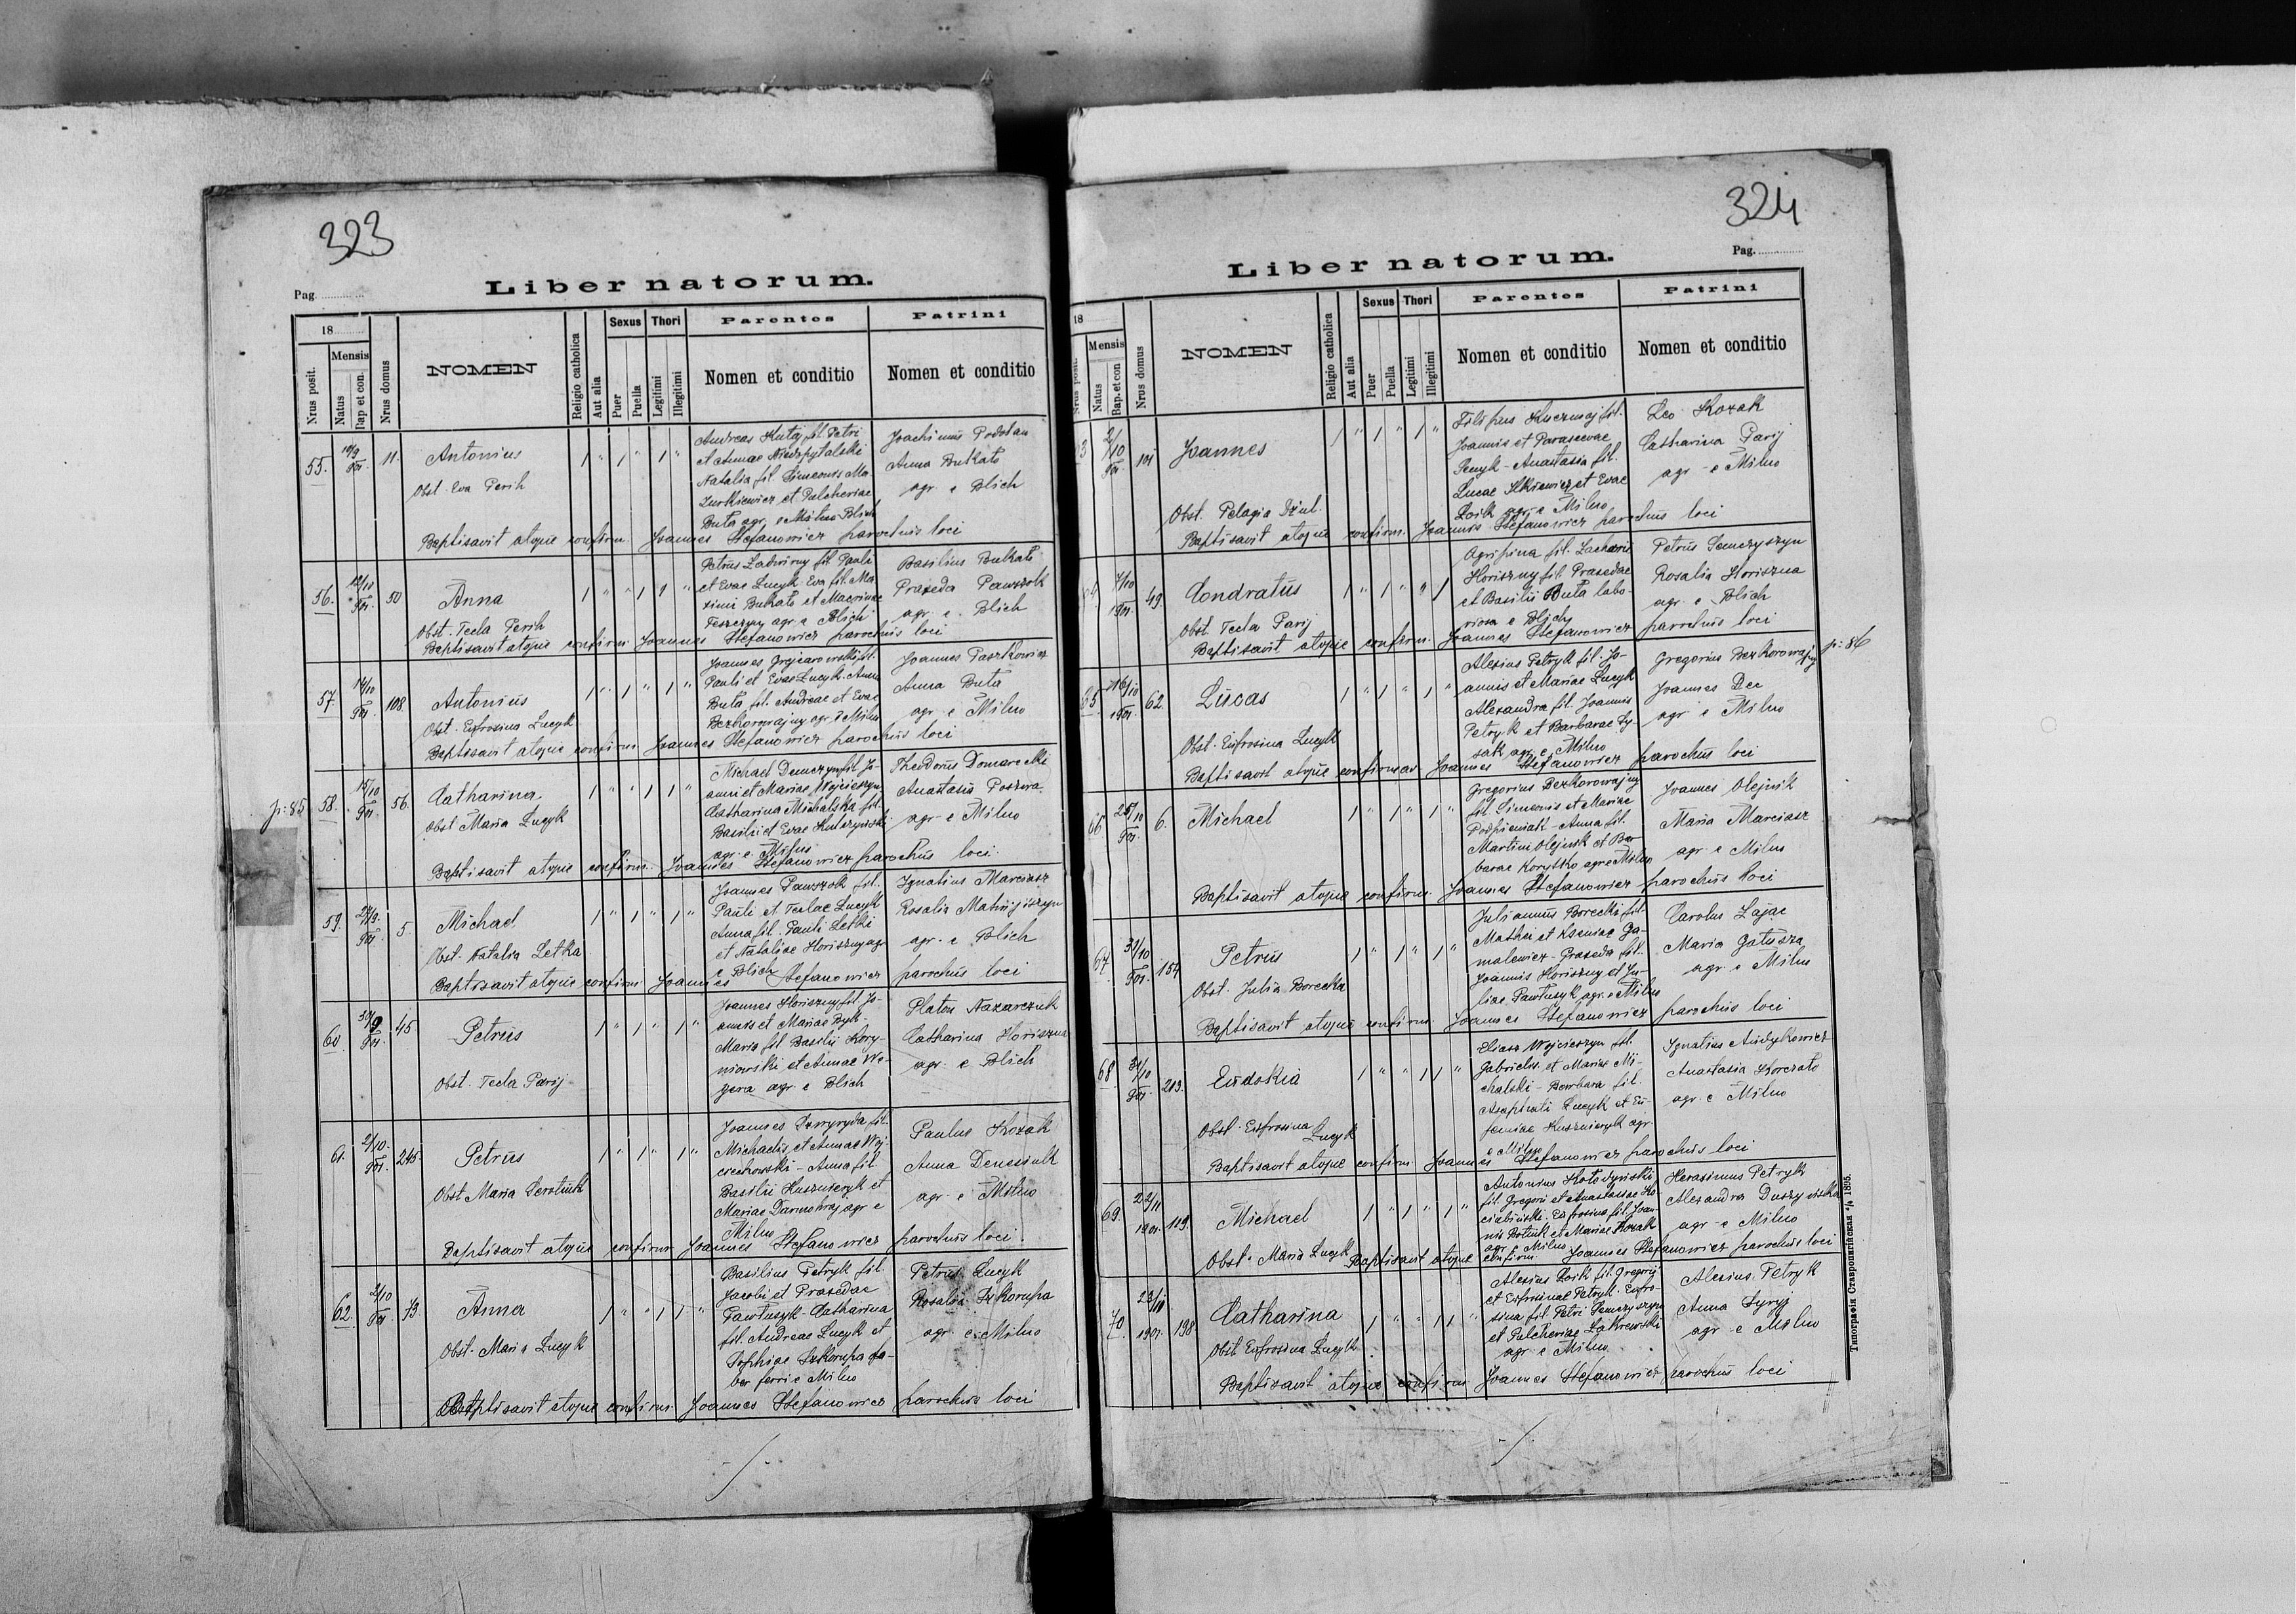 323
Liber natorum.
Pag.
18
Nrus posit.
Mensis
Natus
Bap et con.
Nrus domus
NOMEN
Religio catholica
Aut alia
Sexus
Puer
Puella
Thori
Legitimi
Illegitimi
Parentes
Nomen et conditio
Patrini
Nomen et conditio
55.
11.
Antonius
Obst. Eva Perih
Andreas Kutaj fil. Petri
et Annae
Natalia fil. Simeonis Ma-
zurkiewicz et Pulcheriae
Buta agr. e Milno Blich
Joachimus Podolan
Anna Butkato
agr. e Blich
Baptisavit atque confirm. Joannes Stefanowicz parochus loci
56.
50
Anna
Obst. Tecla Perih
Petrus fil. Pauli
et Evae Lucyk. Eva fil. Ma-
ximi Butkato et Macrinae
Teszczyn agr. e Blich
Basilius Butkato
Praxeda Pawszok
agr. e. Blich
Baptisavit atque confirm. Joannes Stefanowicz parochus loci
57.
14/10
108.
Antonius
Obst. Eufrosina Lucyk
Joannes fil.
Pauli et Evae Lucyk. Anna
Buta fil. Andreae et Evae
Bezkorowajny agr. e Milno
Joannes Paszkowicz
Anna Buta
agr. e Milno
Baptisavit atque confirm. Joannes Stefanowicz parochus loci
p: 85
58.
15/10
56.
Catharina.
Obst Maria Lucyk
Michael Demczyn fil. Jo-
annis et Mariae Wojcieszyn
Catharina Michalska fil.
Basilii et Evae
agr. e. Milno
Theodorus Domarecki
Anastasia Poszwa
agr. e Milno
Baptisavit atque confirm. Joannes Stefanowicz parochus loci
59.
5
Michael
Obst. Natalia Letka
Joannes Pawszok fil.
Pauli et Teclae Lucyk
Anna fil. Pauli Letki
et Nataliae Horiszny agr.
e Blich
Ignatius Marciasz
Rosalia Matwijiszyn
agr. e Blich
Baptisavit atque confirm Joannes Stefanowicz parochus loci
60.
45
Petrus
Obst. Tecla Parij
Joannes Horiszny fil. Jo-
annis et Mariae Byk-
Maria fil Basilii Kory-
niowski et Annae We-
gera agr. e Blich
Platon Nazarczuk
Catharina Horiszna
agr. e Blich
61.
2/10.
245.
Petrus
Obst Maria Serotiuk
Joannes fil.
Michaelis et Annae Woj-
ciechowski - Anna fil
Basilii Kuszniryk et
Mariae agr e
Milno
Paulus Kozak
Anna Denesiuk
agr. e Milno
Baptisavit atque confirm Joannes Stefanowicz parochus loci
62.
2/10
73
Anna
Obst. Maria Lucyk
Basilius Petryk fil.
Jacobi et Praxedae
Pawlusyk - Catharina
fil. Andreae Lucyk et
Sophiae Szkorupa fa-
ber ferri e Milno
Petrus Lucyk
Rosalia Szkorupa
agr. e. Milno
Baptisavit atque confirm Joannes Stefanowicz parochus loci
324
Pag.
Liber natorum.
18
Nrus posit.
Mensis
Natus
Bap. et con
Nrus domus
NOMEN
Religio catholica
Aut alia
Sexus
Puer
Puella
Thori
Legitimi
Illegitimi
Parentes
Nomen et conditio
Patrini
Nomen et conditio
2/10
101
Joannes
Obst. Pelagia
Filipus Kuczmaj fil.
Joannis et Parascevae
Anastasia fil.
Lucae Ilkiewicz et Evae
Loik agr. e Milno
Leo Kozak
Catharina Parij
agr - e Milno
Baptisavit atque confirm. Joannes Stefanowicz parochus loci
7/10
1901.
49.
Condratus
Obst. Tecla Parij
Agripina fil. Zachariae
Horiszny fil. Praxedae
et Basilii Buta labo-
riosa e Blich
Petrus Semczyszyn
Rosalia Horiszna
agr. e. Blich
Baptisavit atque confirm. Joannes Stefanowicz parochus loci
p: 86
65
16/10
1901.
62.
Lucas
Obst. Eufrosina Lucyk
Alexius Petryk fil. Jo-
annis et Mariae Lucyk
Alexandra fil. Joannis
Petryk et Barbarae Ły-
sak agr. e. Milno
Gregorius Bezkorowajny
Joannes Dec
agr. e Milno
Baptisavit atque confirmav. Joannes Stefanowicz parochus loci
66
25/10
6.
Michael
Gregorius Bezkorowajny
fil. Simeonis et Mariae
Podpieniak - Anna fil.
Martini Olejnik et Bar-
barae Korytko agr e Milno
Joannes Olejnik
Maria Marciasz
agr. e Milno
Baptisavit atque confirm. Joannes Stefanowicz parochus loci
67
31/10
154
Petrus
Obst. Julia Borecka
Julianus Borecki fil.
Mathei et Kseniae Ga-
malewicz - Praxeda fil.
Joannis Horiszny et Ju-
liae Pawlusyk agr. e Milno
Carolus Zajac
Maria Gatusza
agr. e Milno
Baptisavit atque confirm. Joannes Stefanowicz parochus loci
68
31/10
213.
Eudokia
Obst. Eufrosina
Lucyk
Elias Wojcieszyn fil.
Gabrielis et Mariae Mi-
chalski - Barbara fil.
Asaphati Lucyk et Eu-
femiae Kuszniryk agr.
e Milno
Ignatius Andykowicz
Anastasia Korczato
agr. e Milno
Baptisavit atque confirm. Joannes Stefanowicz parochus loci
69.
22/11
1901.
119.
Michael
Obst. Maria Lucyk
Antonius Kołodyński
fil. Gregorii et Anastasiae Ko-
Eufrosina fil. Joan-
nis et Mariae Kozak
agr. e Milno
Herasimus Petryk
Alexandra
agr - e Milno
Baptisavit atque confirm. Joannes Stefanowicz parochus loci
70
23/11
1901.
198
Catharina
Obst Eufrosina Lucyk
Alexius Loik fil. Gregorij
et Eufrosinae Petryk. Eufro-
sina fil. Petri Semczyszyn
et Pulcheriae Zakrewski
agr. e Milno
Alexius Petryk
Anna Syryj
agr - e Milno
Baptisavit atque confirm Joannes Stefanowicz parochus loci
Типографія Ставропигійская
1895.